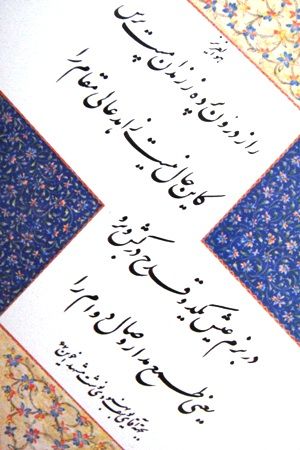 هو العزیز
راز درون پرده ز رندان مست پرس
کاین حال نیست زاهد عالی مقام را
در بزم عیش یک دو قدح درکش و برو
یعنی طمع مدار وصال دوام را